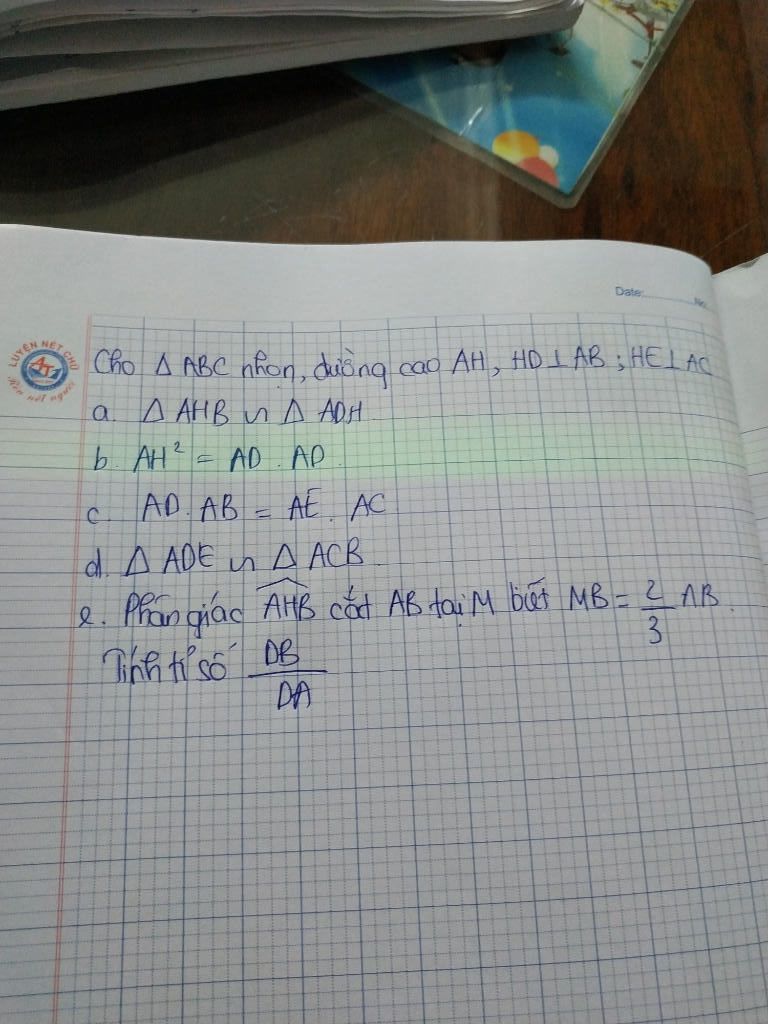 Date: No:
LUYỆN NÉT CHỮ
Rèn nết người
Cho Δ ABC nhọn, đường cao AH, HD⊥AB ; HE⊥AC
a. Δ AHB ∽ Δ ADH
b. AH² = AD . AD
c. AD. AB = AE. AC
d. Δ ADE ∽ Δ ACB
e. Phân giác \widehat{AHB} cắt AB tại M biết MB = 2/3 AB.
Tính tỉ số DB/DA